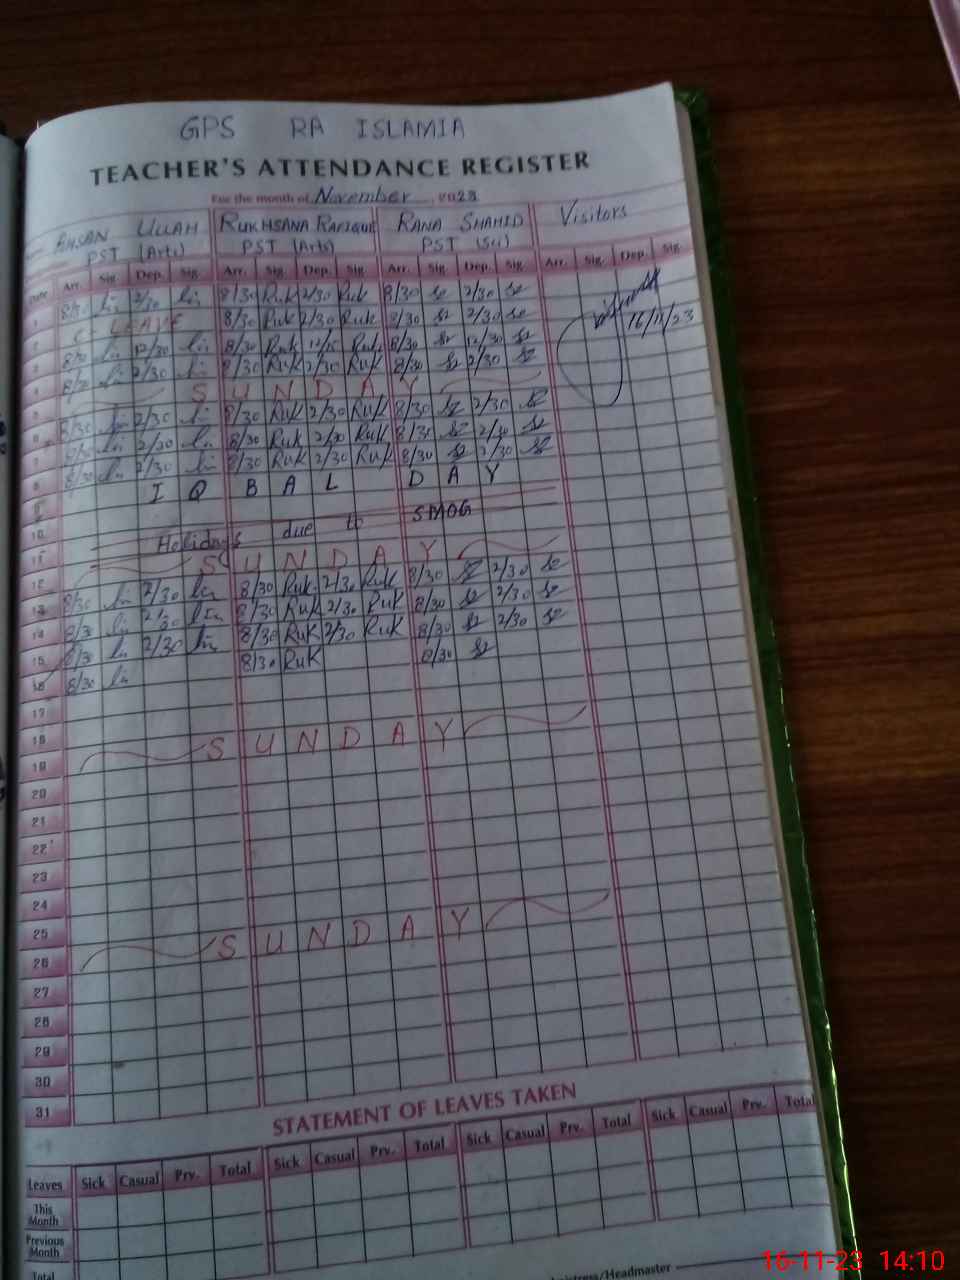 GPS RA ISLAMIA
TEACHER'S ATTENDANCE REGISTER
For the month of November 2023
AHSAN ULLAH RUKHSANA RAFIQUE RANA SHAHID Visitors
PST (Arts) PST (Arts) PST (Sci)
Date Arr. Sig. Dep. Sig. Arr. Sig. Dep. Sig. Arr. Sig. Dep. Sig. Arr. Sig. Dep. Sig.
1 8/30 2/30 8/30 Ruk 2/30 Ruk 8/30 2/30
2 C- LEAVE 8/30 Ruk 2/30 Ruk 8/30 2/30 16/11/23
3 8/30 12/30 8/30 Ruk 12/15 Ruk 8/30 12/30
4 8/30 2/30 8/30 Ruk 2/30 Ruk 8/30 2/30
5 SUNDAY
6 8/30 2/30 8/30 Ruk 2/30 Ruk 8/30 2/30
7 8/30 2/30 8/30 Ruk 2/30 Ruk 8/30 2/30
8 8/30 2/30 8/30 Ruk 2/30 Ruk 8/30 2/30
9 IQBAL DAY
10
11 Holidays due to SMOG
12 SUNDAY
13 8/30 2/30 8/30 Ruk. 2/30 Ruk 8/30 2/30
14 8/30 2/30 8/30 Ruk 2/30 Ruk 8/30 2/30
15 8/30 2/30 8/30 Ruk 2/30 Ruk 8/30 2/30
16 8/30 8/30 Ruk 8/30
17
18
19 SUNDAY
20
21
22
23
24
25
26 SUNDAY
27
28
29
30
31
STATEMENT OF LEAVES TAKEN
Leaves Sick Casual Prv. Total Sick Casual Prv. Total Sick Casual Prv. Total Sick Casual Prv. Total
This Month
Previous Month
Total
/Headmaster
16-11-23 14:10